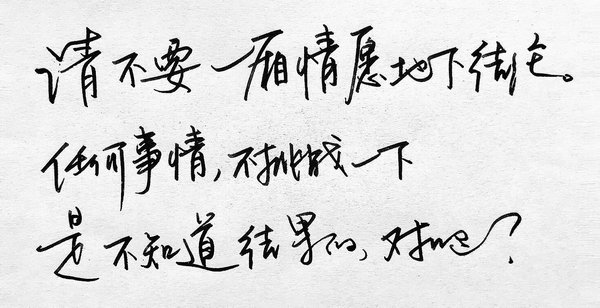 请不要一厢情愿地下结论。
任何事情,不挑战一下
是不知道结果的,对吧?